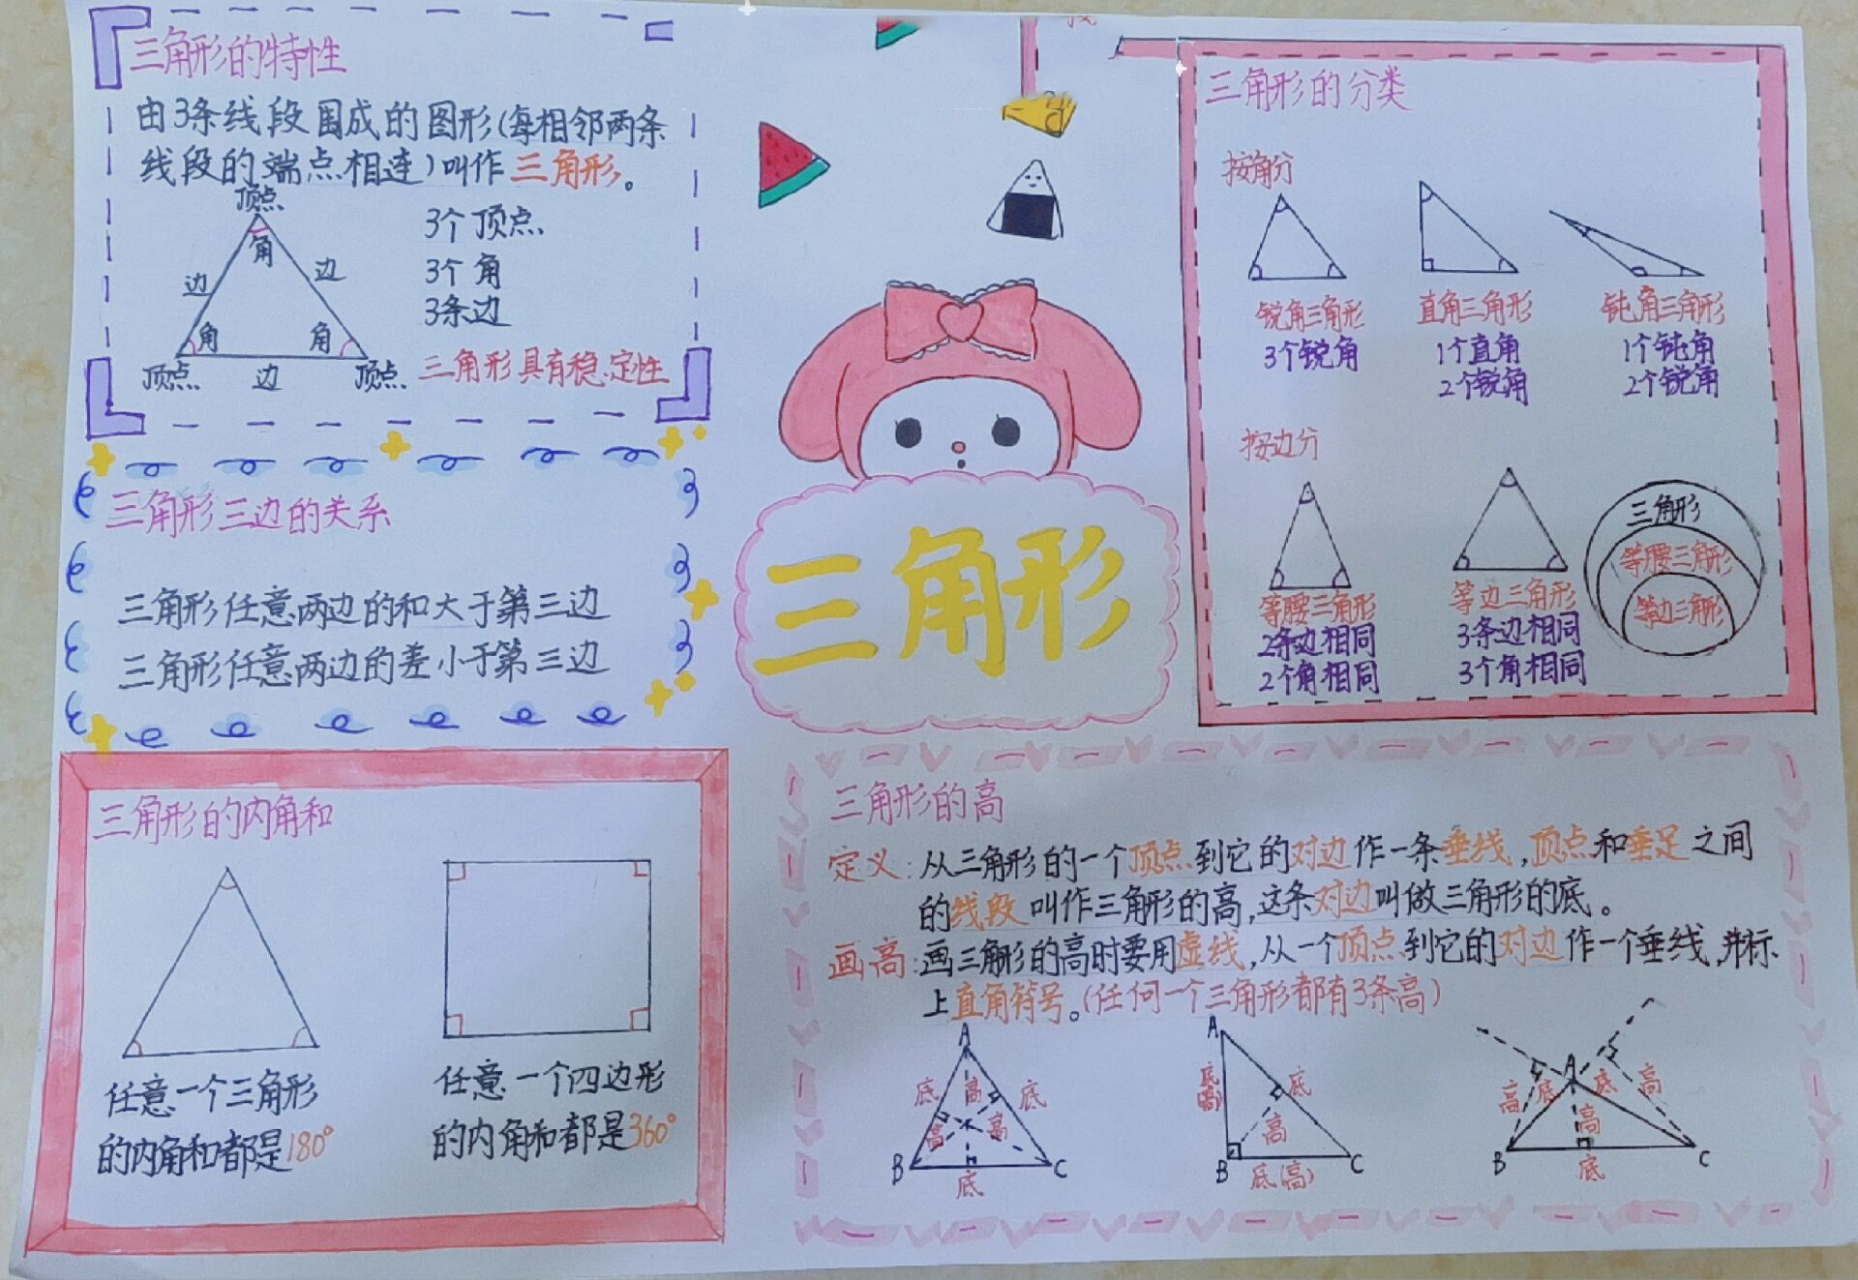 三角形的特性
由3条线段围成的图形(每相邻两条
线段的端点相连)叫作三角形。
顶点
角
边
边
角
角
顶点
边
顶点
3个顶点
3个角
3条边
三角形具有稳定性
三角形三边的关系
三角形任意两边的和大于第三边
三角形任意两边的差小于第三边
三角形的内角和
任意一个三角形
的内角和都是180°
任意一个四边形
的内角和都是360°
三角形
三角形的分类
按角分
锐角三角形
3个锐角
直角三角形
1个直角
2个锐角
钝角三角形
1个钝角
2个锐角
按边分
等腰三角形
2条边相同
2个角相同
等边三角形
3条边相同
3个角相同
三角形
等腰三角形
等边三角形
三角形的高
定义:从三角形的一个顶点到它的对边作一条垂线,顶点和垂足之间
的线段叫作三角形的高,这条对边叫做三角形的底。
画高:画三角形的高时要用虚线,从一个顶点到它的对边作一个垂线,并标
上直角符号。(任何一个三角形都有3条高)
A
底
高
底
高
高
B
底
C
A
底(高)
底
高
B
底(高)
C
A
高
底
底
高
高
B
底
C